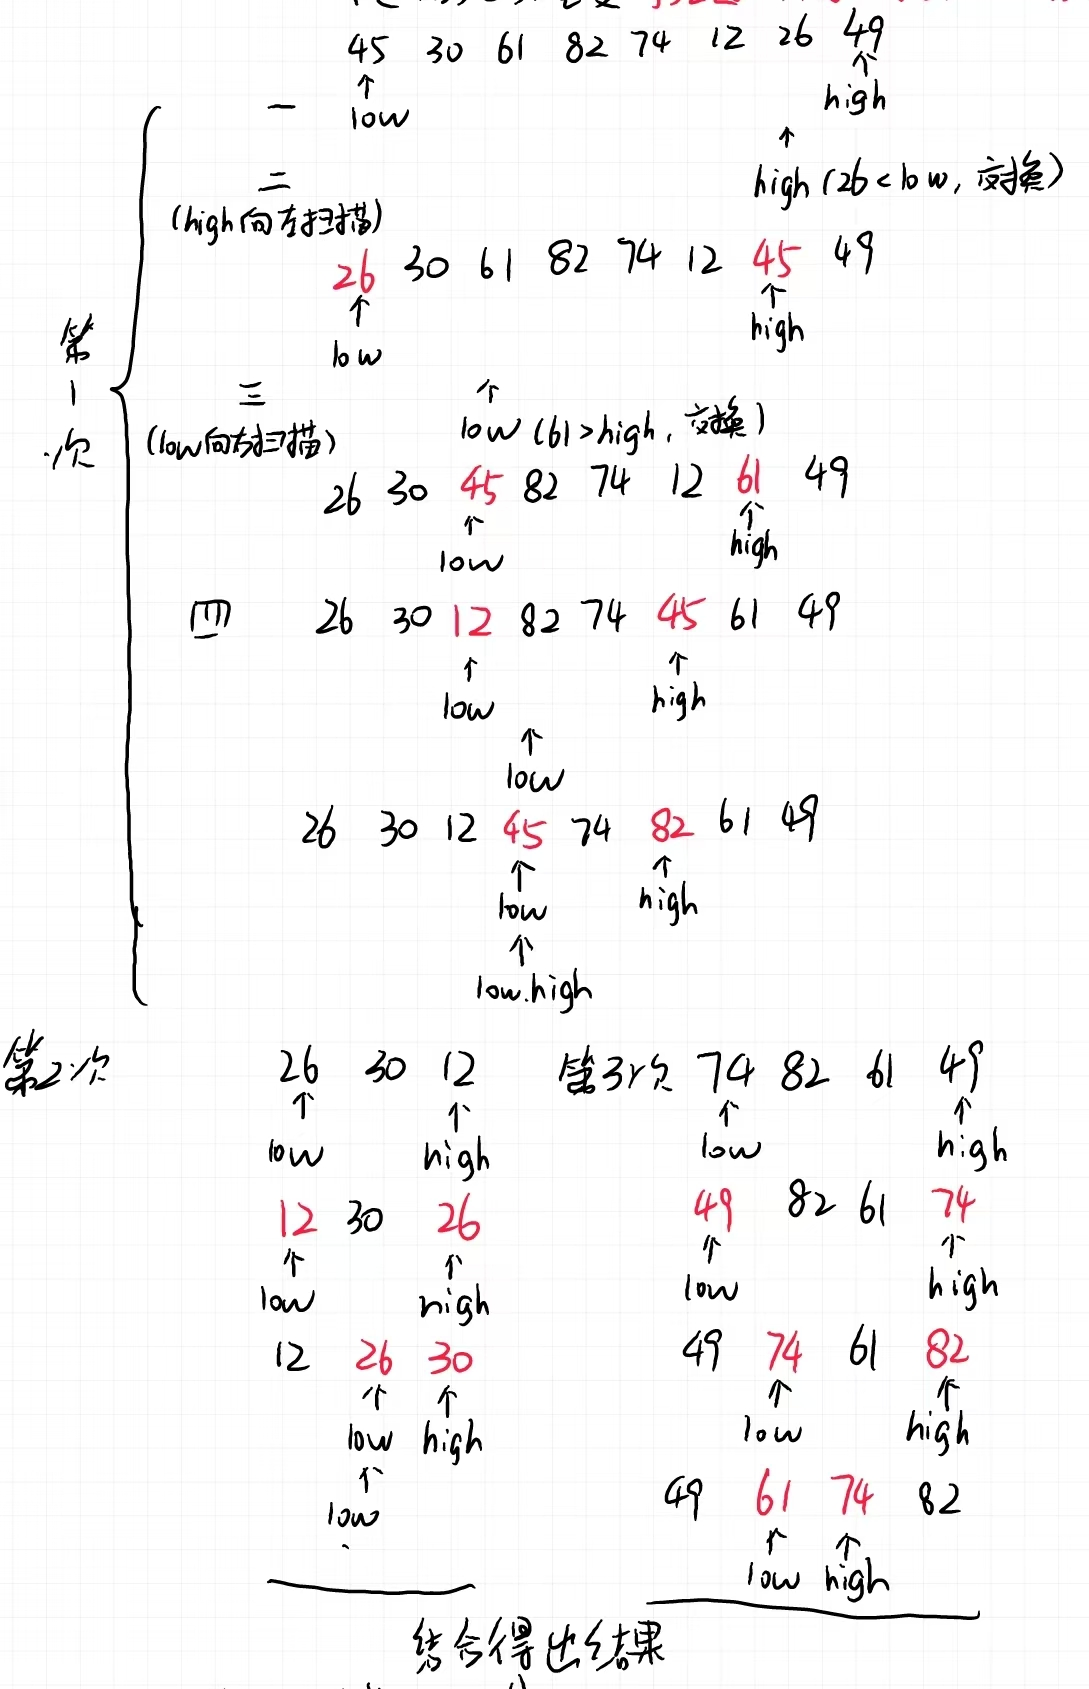 45 30 61 82 74 12 26 49
↑ ↑
一 low high
↑
二 high (26<low, 交换)
(high向左扫描)
26 30 61 82 74 12 45 49
↑ ↑
low high
第1次
三 ↑
(low向右扫描) low (61>high, 交换)
26 30 45 82 74 12 61 49
↑ ↑
low high
四 26 30 12 82 74 45 61 49
↑ ↑
low high
↑
low
26 30 12 45 74 82 61 49
↑ ↑
low high
↑
low.high
第2次 26 30 12
↑ ↑
low high
12 30 26
↑ ↑
low high
12 26 30
↑ ↑
low high
↑
low
第3次 74 82 61 49
↑ ↑
low high
49 82 61 74
↑ ↑
low high
49 74 61 82
↑ ↑
low high
49 61 74 82
↑ ↑
low high
结合得出结果